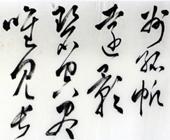 州孤帆
遠影
碧空盡
唯見長